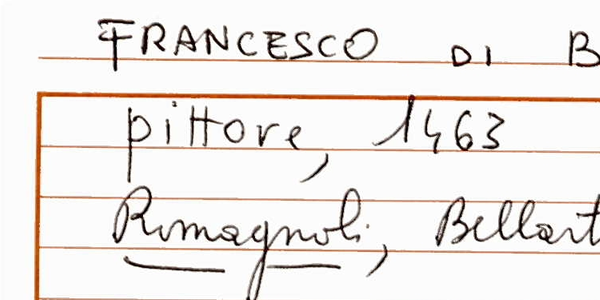 FRANCESCO DI B
pittore, 1463
Romagnoli, Bellart